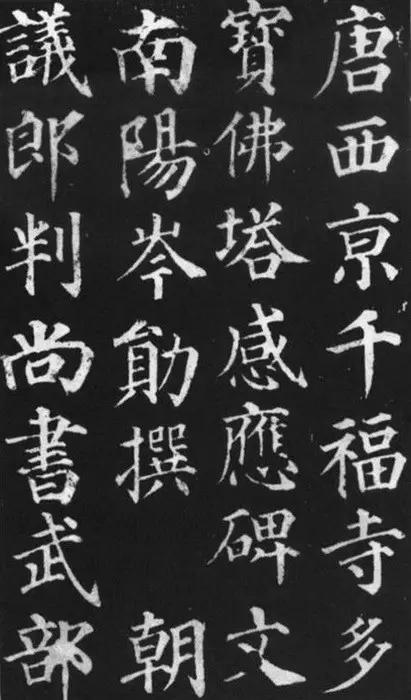 唐西京千福寺多
寶佛塔感應碑文
南陽岑勛撰 朝
議郎判尚書武部